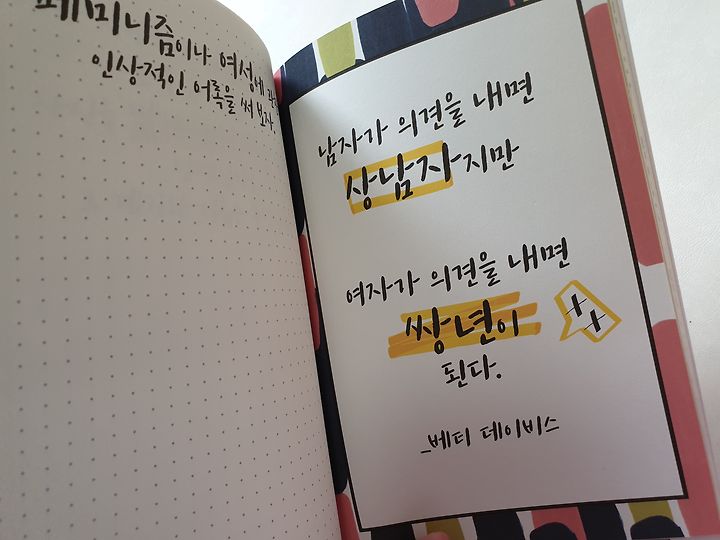 페미니즘이나 여성에
인상적인 어록을 써 보자.
남자가 의견을 내면
상남자지만
여자가 의견을 내면
쌍년이
된다.
_베티 데이비스